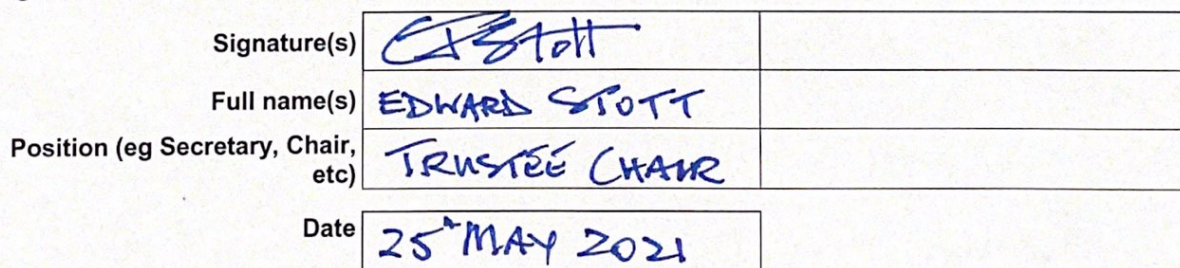 Signature(s) EPStott
Full name(s) EDWARD STOTT
Position (eg Secretary, Chair,
etc) TRUSTEE CHAIR
Date 25th MAY 2021